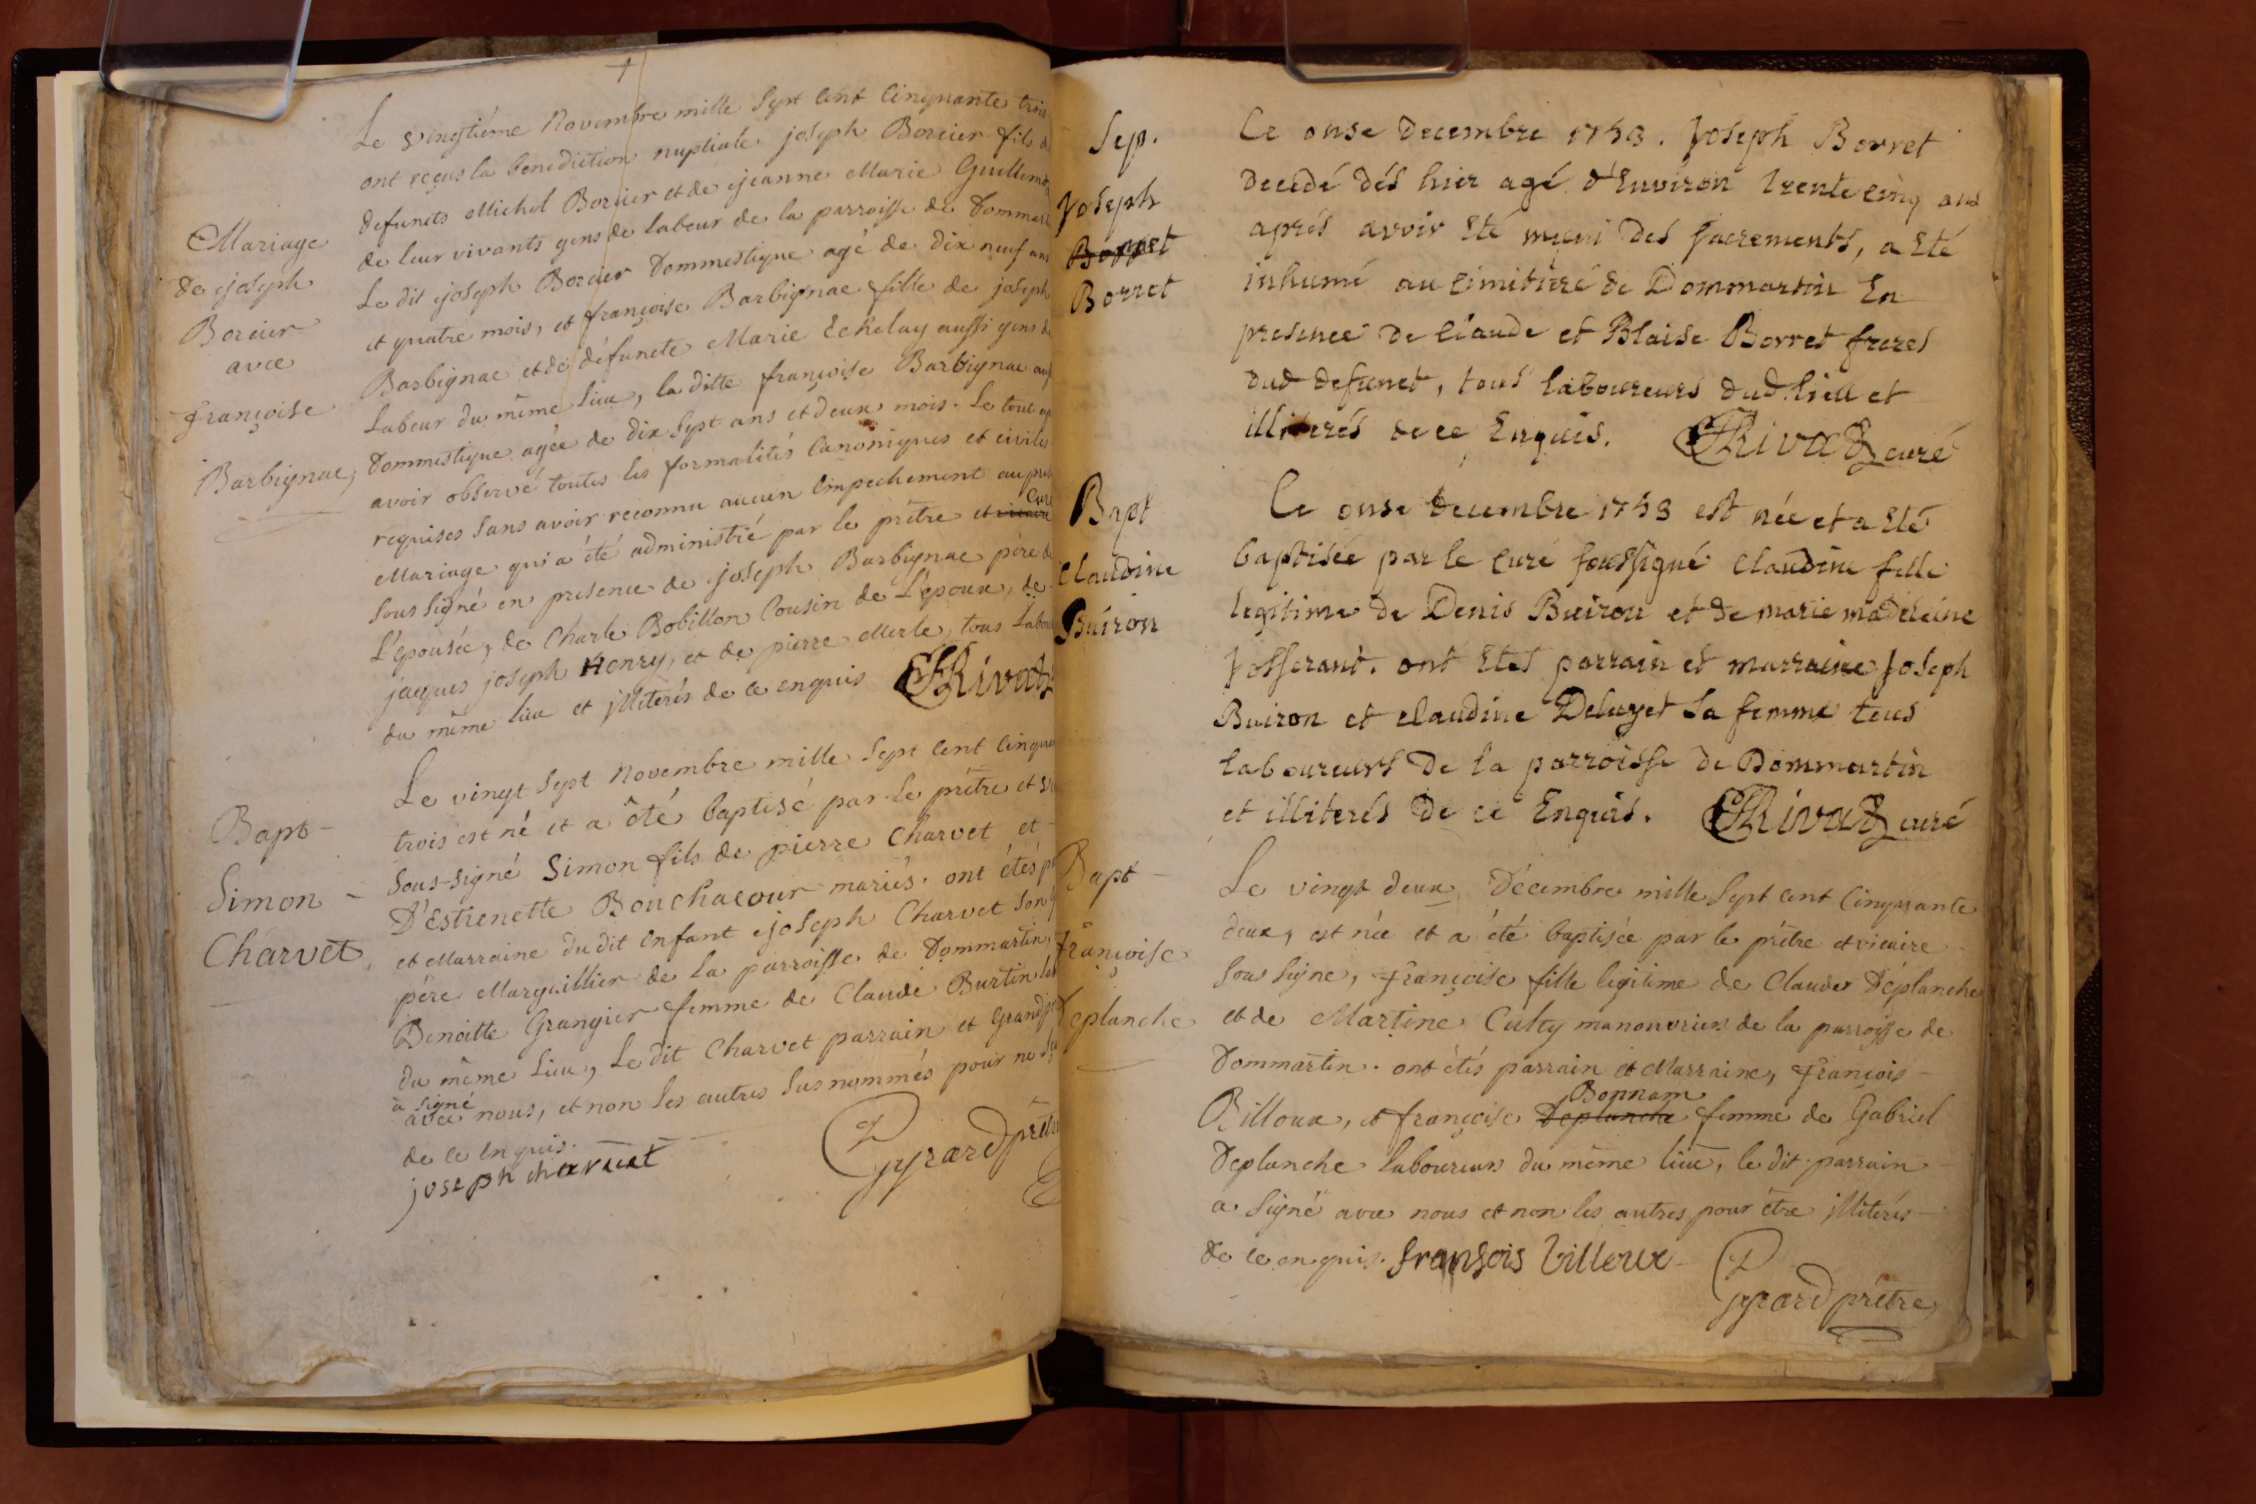 Mariage
de joseph
Borcier
avec
françoise
Barbignac,
Le vingtiéme Novembre mille Sept Cent Cinquante trois
ont reçus la benediction nuptiale joseph Borcier fils de
defunets Michel Borcier et de jeanne Marie Guillemin
de leur vivants gens de labeur de la parroisse de Dommart
Le dit joseph Borcier Dommestique agé de dix neuf ans
et quatre mois, et françoise Barbignac fille de joseph
Barbignac et de défuncte Marie Echelay aussi gens de
Labeur du même lieu, la ditte françoise Barbignac aussi
Dommestique agée de dix Sept ans et deux mois. Le tout
avoir observé toutes les formalités Canoniques et civiles
requises Sans avoir reconnu aucun Empechement au
Mariage qui a été administré par le prêtre et vicaire Curé
Sous Signé en presence de joseph Barbignac père de
L'epousée, de Charle Bobillon Cousin de L'epoux, de
jacques joseph Henry, et de pierre Merle, tous Labou
du même lieu et jlliterés de ce enquis Rivat
Bapt-
Simon-
Charvet
Le vingt Sept Novembre mille Sept Cent Cinqua
trois est né et a été baptisé par le prêtre et vi
Sous-signé Simon fils de pierre Charvet et
D'Estienette Bouchacour mariés. ont étés p
et Marraine du dit enfant joseph Charvet Son
pére Marguillier de la parroisse de Dommartin,
Benoitte Grangier femme de Claude Burtin lab
du même lieu, Le dit Charvet parrain et Grand
a signé
avec nous, et non les autres Susnommés pour ne
de ce Enquis.
joseph charvet
Gyrard prêtre
Sep.
Joseph
Borret
Borret
Le onse decembre 1753. Joseph Borret
decedé dés hier agé d'Environ trente cinq ans
aprés avoir Eté muni des Sacrements, a Eté
inhumé au cimitiere de Dommartin En
presence de claude et Blaise Borret freres
dud defunct, tous laboureurs dud. lieu et
illiterés de ce Enquis. Rivat curé
Bapt
Claudine
Buiron
Le onse decembre 1753 est née et a Eté
baptisée par le curé soussigné claudine fille
legitime de Denis Buiron et de marie madeleine
Josserant. ont Etes parrain et marraine Joseph
Buiron et claudine Deluyet Sa femme tous
laboureurs de la parroisse de Dommartin
et illiterés de ce Enquis. Rivat curé
Bapt-
françoise
Deplanche
Le vingt deux Décembre mille Sept Cent Cinquante
deux, est née et a été baptisée par le prêtre et vicaire
Sou Signe, françoise fille legitime de Claude Déplanche
et de Martine Culty manouvrier de la parroisse de
Dommartin. ont étés parrain et Marraine, François-
Billoux, et françoise Deplanche Bonnam femme de Gabriel
Deplanche laboureur du même lieu, le dit parrain-
a Signé avec nous et non les autres pour être jlliterés-
de ce enquis. fransois billoux
Gyrard prêtre